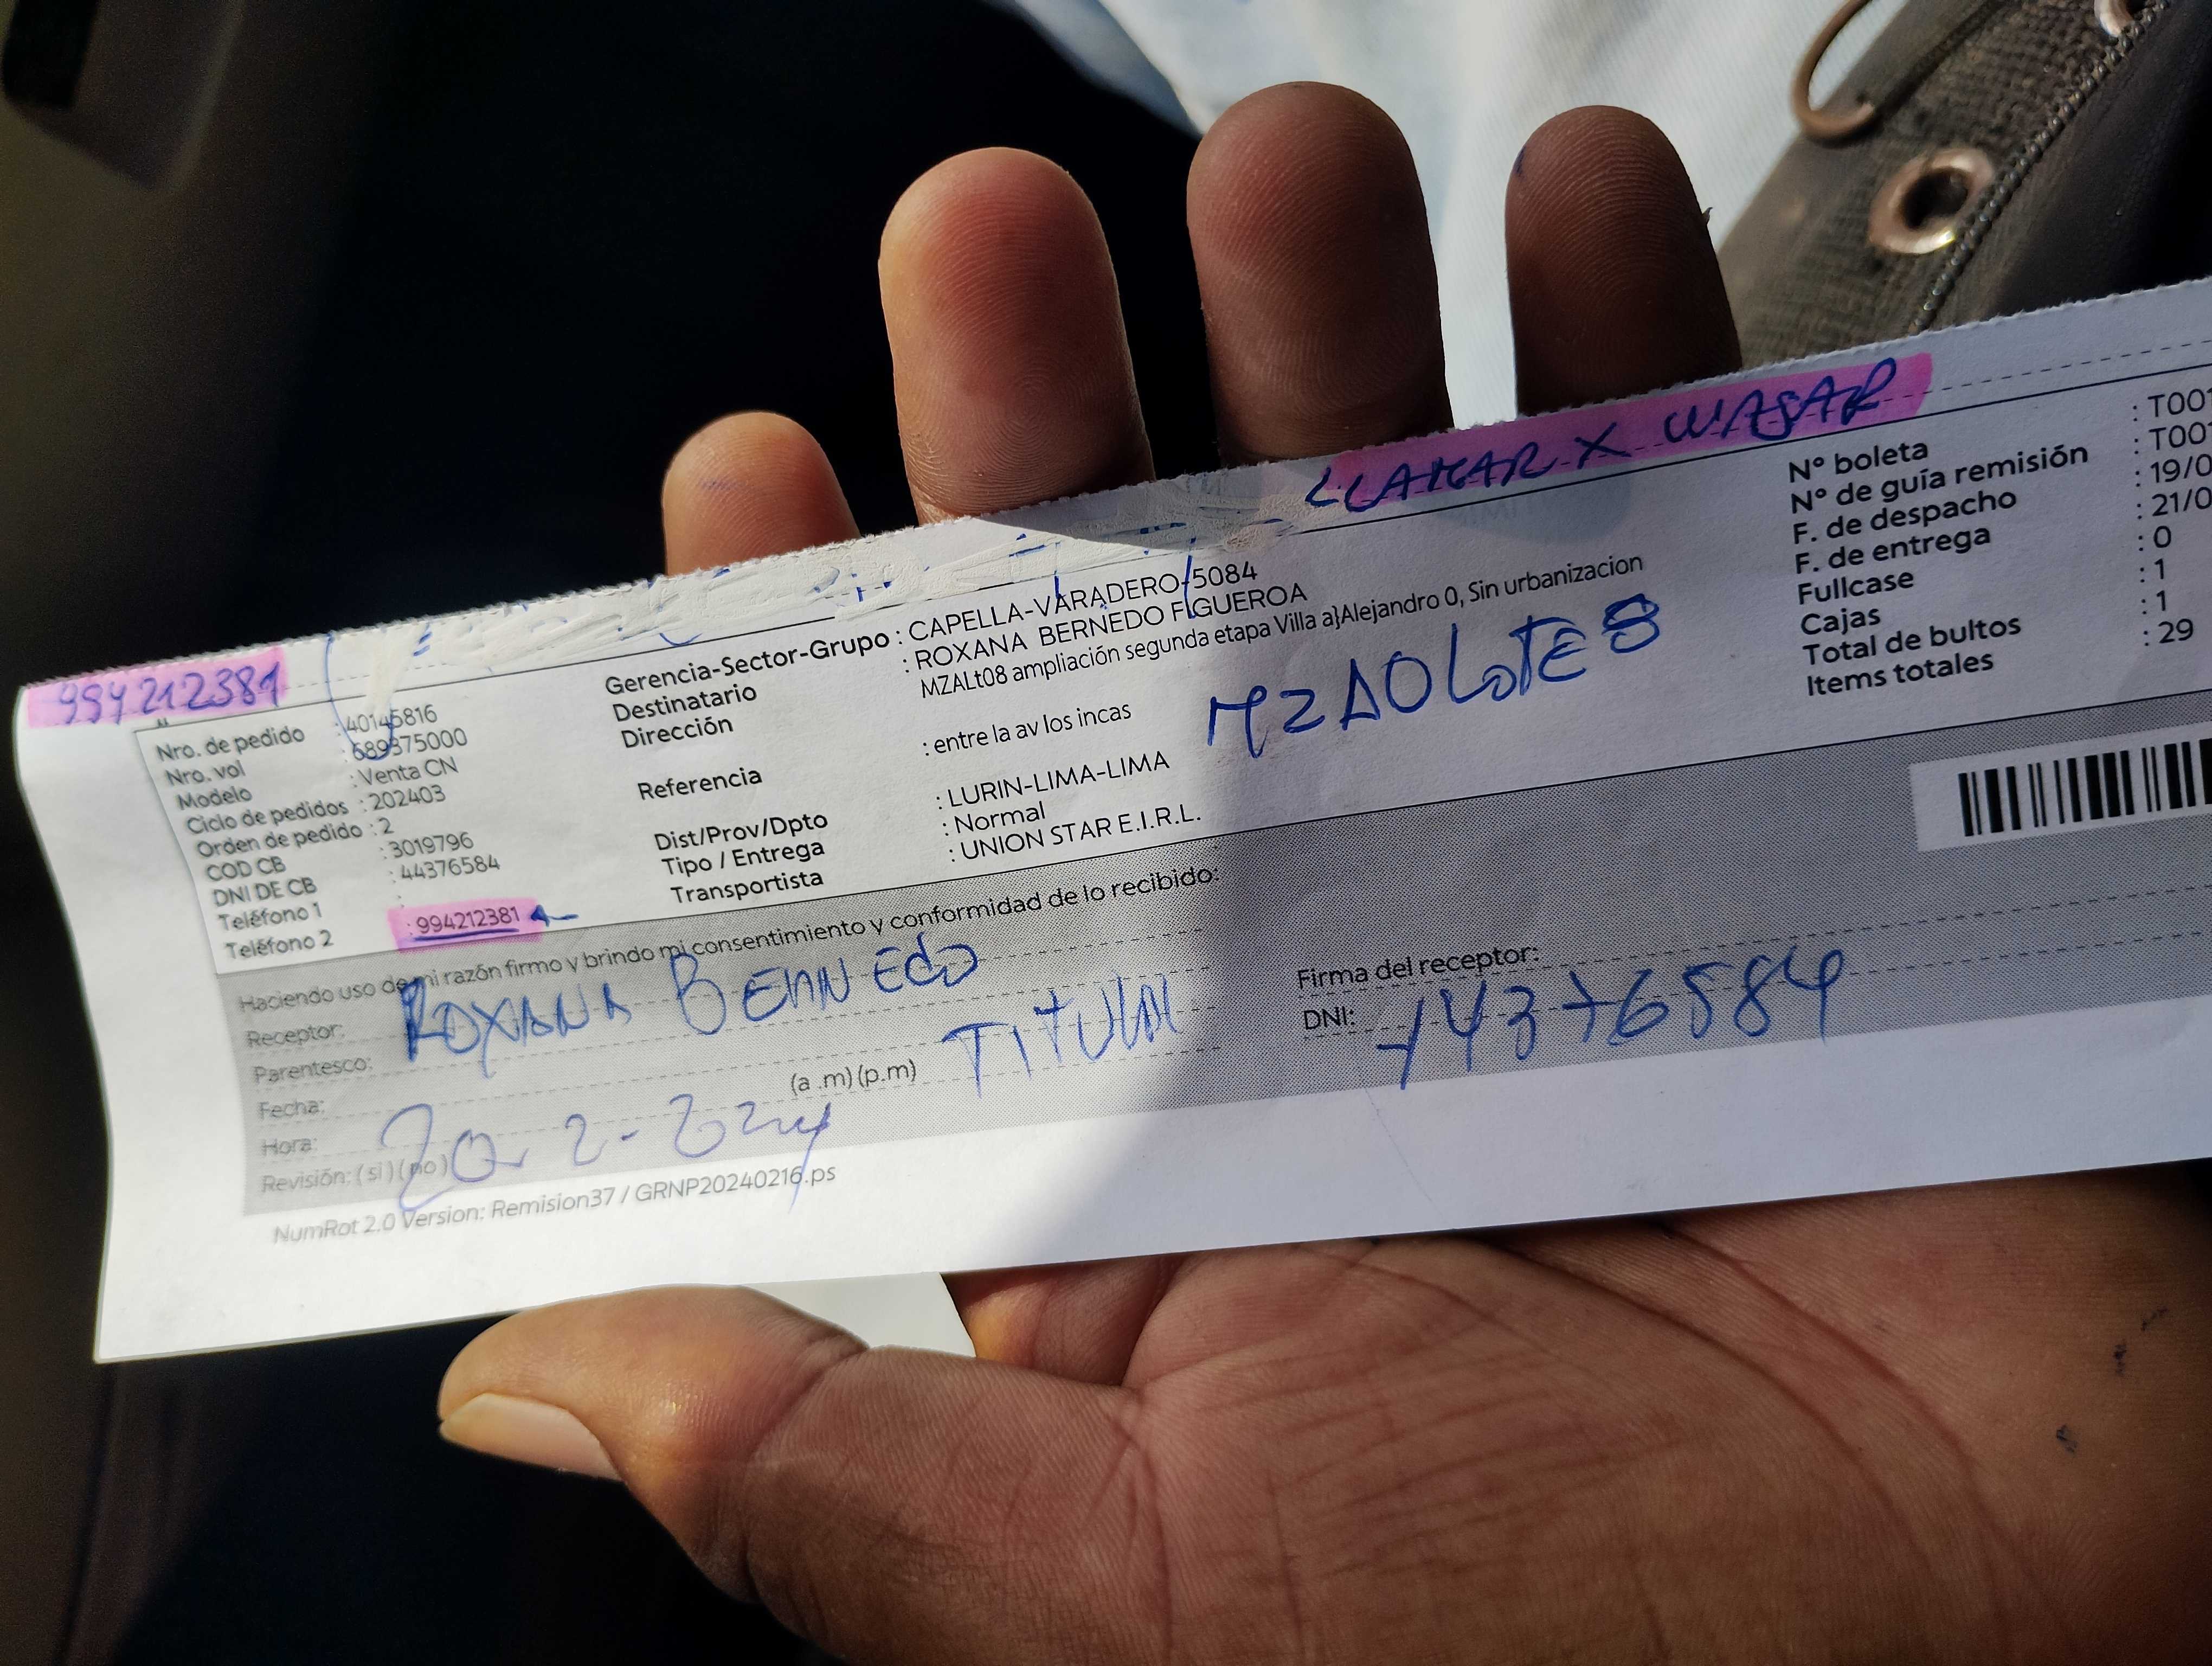 LLAMAR X WASAP
994212381
Nro. de pedido : 40145816
Nro. vol : 689375000
Modelo : Venta CN
Ciclo de pedidos : 202403
Orden de pedido : 2
COD CB : 3019796
DNI DE CB : 44376584
Teléfono 1 :
Teléfono 2 : 994212381
Gerencia-Sector-Grupo : CAPELLA-VARADERO-5084
Destinatario : ROXANA BERNEDO FIGUEROA
Dirección MZALt08 ampliación segunda etapa Villa a}Alejandro 0, Sin urbanizacion
MZ AO LOTE 8
Referencia : entre la av los incas
Dist/Prov/Dpto : LURIN-LIMA-LIMA
Tipo / Entrega : Normal
Transportista : UNION STAR E.I.R.L.
N° boleta : T001
N° de guía remisión : T001
F. de despacho : 19/0
F. de entrega : 21/0
Fullcase : 0
Cajas : 1
Total de bultos : 1
Items totales : 29
Haciendo uso de mi razón firmo y brindo mi consentimiento y conformidad de lo recibido:
Receptor: ROXANA BERNEDO
Parentesco: TITULAR
Fecha:
Hora: (a .m) (p.m)
Revisión: (si) (no) 20-2-2024
Firma del receptor:
DNI: 44376584
NumRot 2.0 Version: Remision37 / GRNP20240216.ps